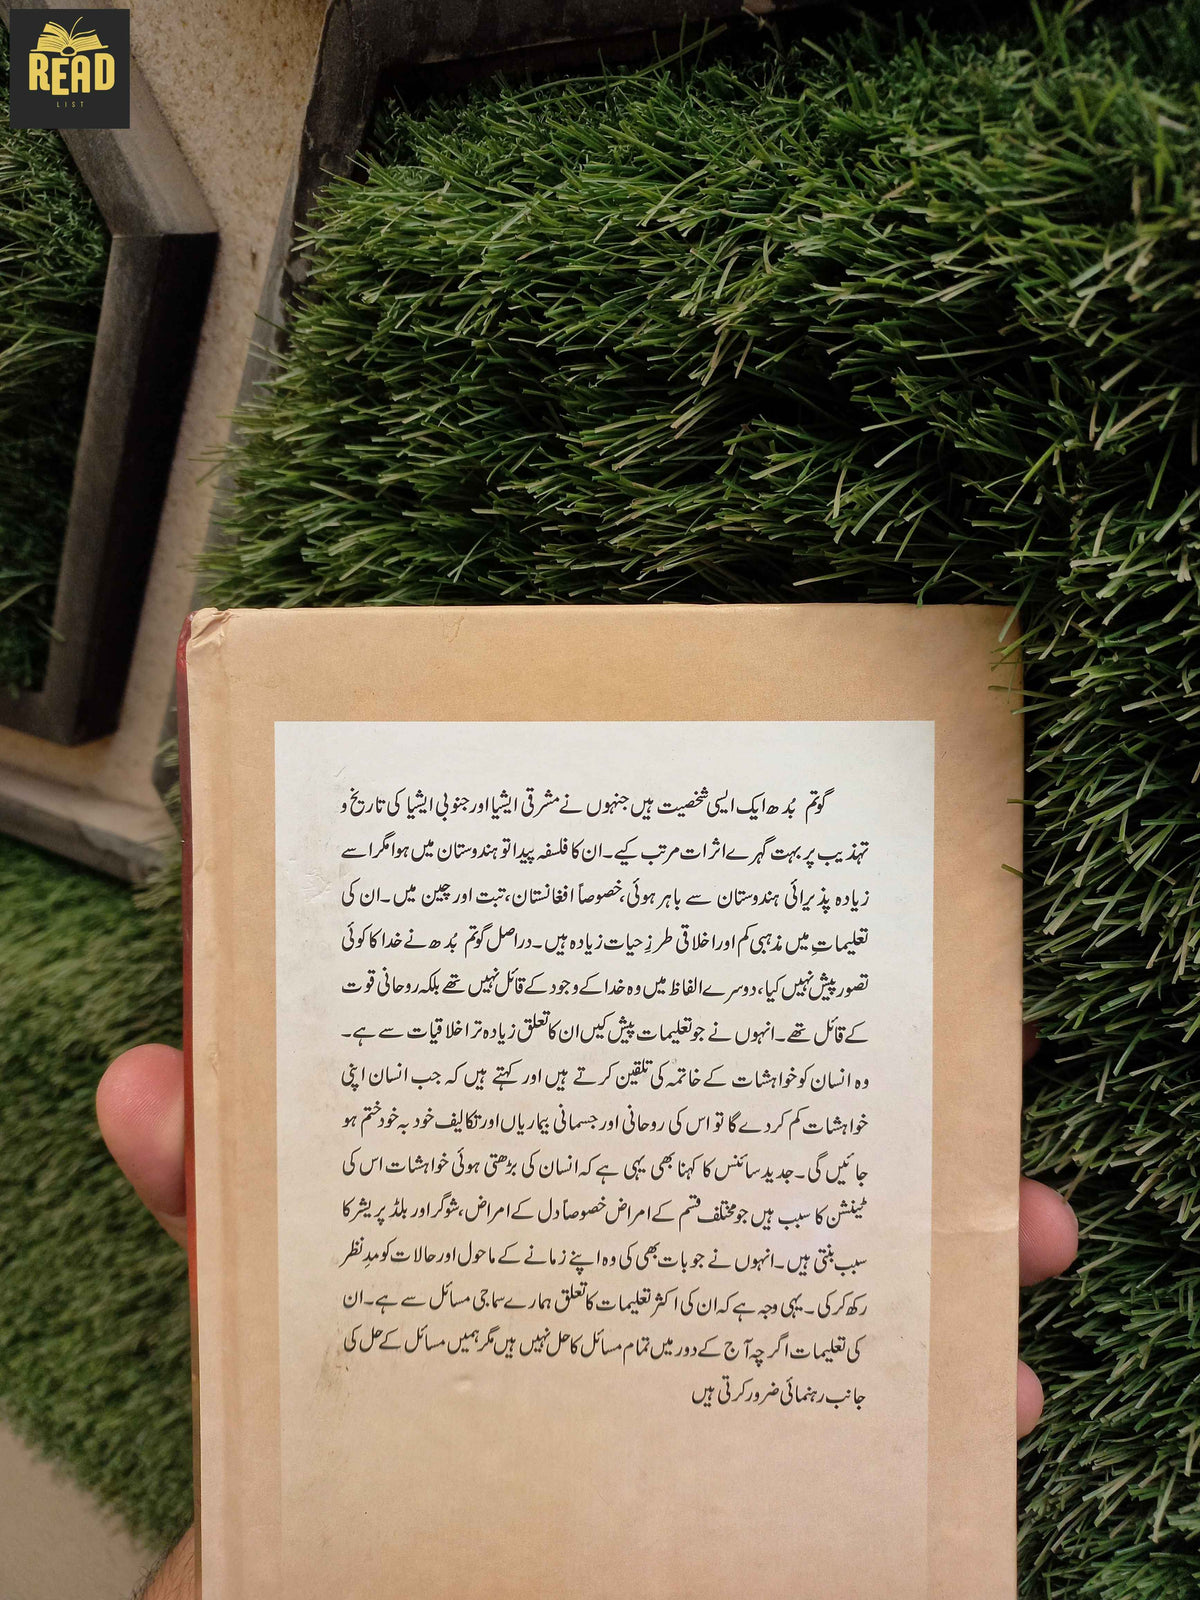 READ
LIST
گوتم بُدھ ایک ایسی شخصیت ہیں جنہوں نے مشرقی ایشیا اور جنوبی ایشیا کی تاریخ و
تہذیب پر بہت گہرے اثرات مرتب کیے۔ ان کا فلسفہ پیدا تو ہندوستان میں ہوا مگر اسے
زیادہ پذیرائی ہندوستان سے باہر ہوئی، خصوصاً افغانستان، تبت اور چین میں۔ ان کی
تعلیماتِ میں مذہبی کم اور اخلاقی طرزِ حیات زیادہ ہیں۔ دراصل گوتم بُدھ نے خدا کا کوئی
تصور پیش نہیں کیا، دوسرے الفاظ میں وہ خدا کے وجود کے قائل نہیں تھے بلکہ روحانی قوت
کے قائل تھے۔ انہوں نے جو تعلیمات پیش کیں ان کا تعلق زیادہ تر اخلاقیات سے ہے۔
وہ انسان کو خواہشات کے خاتمہ کی تلقین کرتے ہیں اور کہتے ہیں کہ جب انسان اپنی
خواہشات کم کر دے گا تو اس کی روحانی اور جسمانی بیماریاں اور تکالیف خود بہ خود ختم ہو
جائیں گی۔ جدید سائنس کا کہنا بھی یہی ہے کہ انسان کی بڑھتی ہوئی خواہشات اس کی
ٹینشن کا سبب ہیں جو مختلف قسم کے امراض خصوصاً دل کے امراض، شوگر اور بلڈ پریشر کا
سبب بنتی ہیں۔ انہوں نے جو بات بھی کی وہ اپنے زمانے کے ماحول اور حالات کو مدِنظر
رکھ کر کی۔ یہی وجہ ہے کہ ان کی اکثر تعلیمات کا تعلق ہمارے سماجی مسائل سے ہے۔ ان
کی تعلیمات اگرچہ آج کے دور میں تمام مسائل کا حل نہیں ہیں مگر ہمیں مسائل کے حل کی
جانب رہنمائی ضرور کرتی ہیں